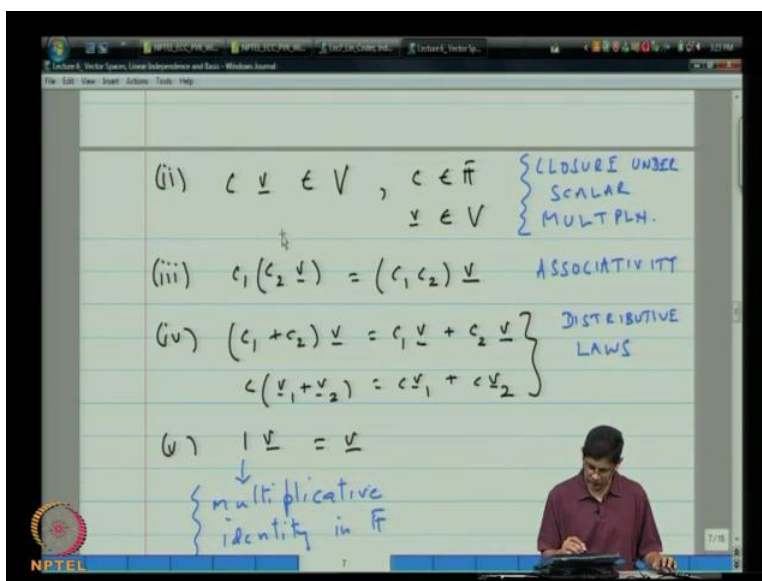 Lecture 6_ Vector Spaces, Linear Independence and Basis - Windows Journal
File Edit View Insert Actions Tools Help
3:25 PM
(ii) c v ∈ V , c ∈ F
v ∈ V
CLOSURE UNDER
SCALAR
MULTPLN.
(iii) c₁(c₂ v) = (c₁ c₂) v ASSOCIATIVITY
(iv) (c₁ + c₂) v = c₁ v + c₂ v
c(v₁ + v₂) = c v₁ + c v₂
DISTRIBUTIVE
LAWS
(v) 1 v = v
multiplicative
identity in F
NPTEL
7
7/15